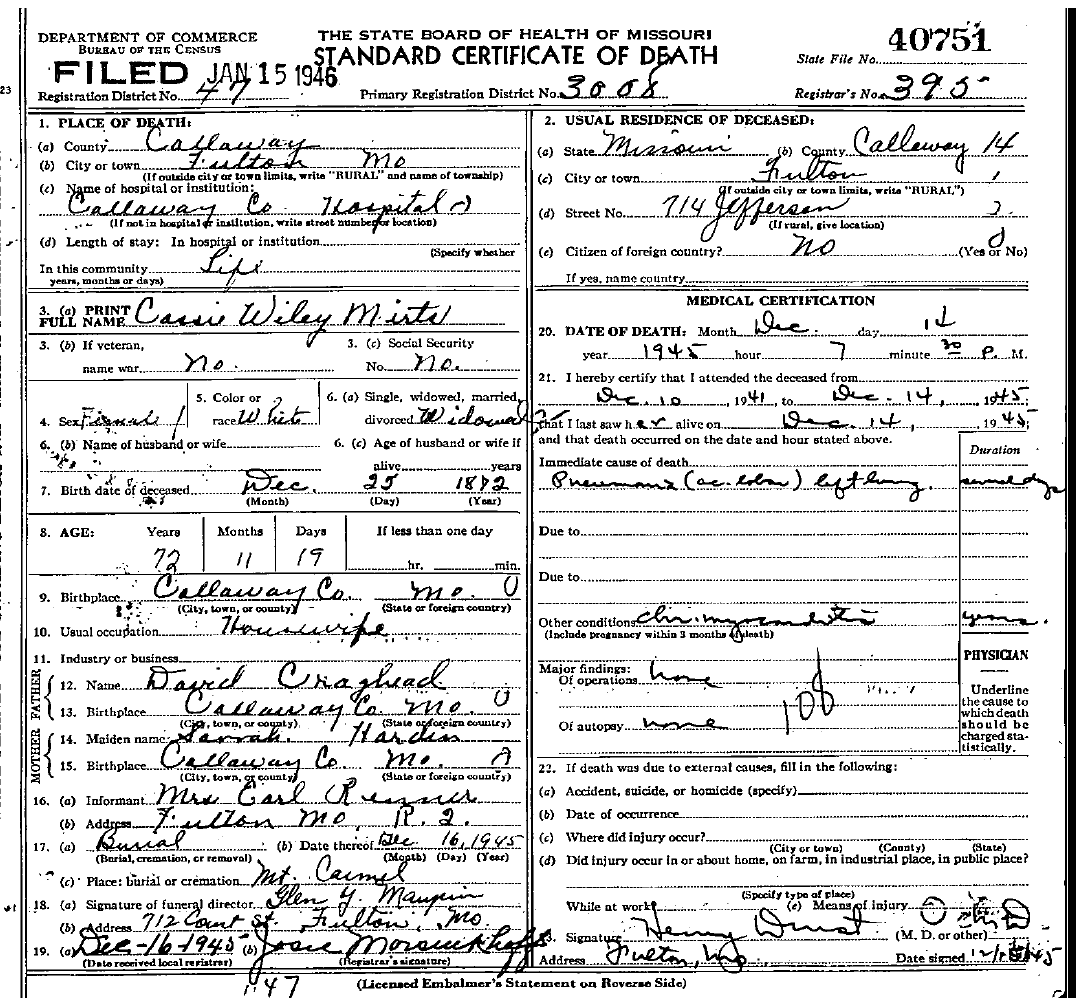 DEPARTMENT OF COMMERCE
BUREAU OF THE CENSUS
THE STATE BOARD OF HEALTH OF MISSOURI
STANDARD CERTIFICATE OF DEATH
40751
State File No.
FILED JAN 15 1946
Registration District No. 47
Primary Registration District No. 3008
Registrar's No. 395
23
1. PLACE OF DEATH:
(a) County Callaway
(b) City or town Fulton Mo
(If outside city or town limits, write "RURAL" and name of township)
(c) Name of hospital or institution:
Callaway Co. Hospital
(If not in hospital or institution, write street number or location)
(d) Length of stay: In hospital or institution
(Specify whether
In this community Life
years, months or days)
3. (a) PRINT FULL NAME Cassie Wiley Mirts
3. (b) If veteran,
name war No.
3. (c) Social Security
No. No.
4. Sex Female
5. Color or
race White
6. (a) Single, widowed, married,
divorced Widowed
6. (b) Name of husband or wife
6. (c) Age of husband or wife if
alive years
7. Birth date of deceased Dec. 25 1872
(Month) (Day) (Year)
8. AGE: Years Months Days If less than one day
72 11 19 hr. min.
9. Birthplace Callaway Co. Mo. 0
(City, town, or county) (State or foreign country)
10. Usual occupation Housewife
11. Industry or business
FATHER
12. Name David Craghead
13. Birthplace Callaway Co. Mo. 0
(City, town, or county) (State or foreign country)
MOTHER
14. Maiden name Sarrah. Hardin
15. Birthplace Callaway Co. Mo.
(City, town, or county) (State or foreign country)
16. (a) Informant Mrs Earl Renner
(b) Address Fulton Mo, R. 2.
17. (a) Burial (b) Date thereof Dec 16, 1945
(Burial, cremation, or removal) (Month) (Day) (Year)
(c) Place: burial or cremation Mt. Carmel
18. (a) Signature of funeral director Glen Y. Maupin
(b) Address 712 Court St. Fulton, Mo
19. (a) Dec-16-1945 (b) Josie Morsinkhoff
(Date received local registrar) (Registrar's signature)
47
2. USUAL RESIDENCE OF DECEASED:
(a) State Missouri (b) County Callaway 14
(c) City or town Fulton
(If outside city or town limits, write "RURAL")
(d) Street No. 714 Jefferson
(If rural, give location)
(e) Citizen of foreign country? No (Yes or No)
If yes, name country
MEDICAL CERTIFICATION
20. DATE OF DEATH: Month Dec. day 14
year 1945 hour 7 minute 30 P. M.
21. I hereby certify that I attended the deceased from
Dec. 10, 1941 to Dec. 14, 1945;
that I last saw her alive on Dec. 14, 1945;
and that death occurred on the date and hour stated above.
Duration
Immediate cause of death
Pneumonia (ac. lobar) left lung. several days
Due to
Due to
Other conditions Chr. myocarditis years.
(Include pregnancy within 3 months of death)
Major findings:
Of operations none
108
Of autopsy none
PHYSICIAN
Underline
the cause to
which death
should be
charged sta-
tistically.
22. If death was due to external causes, fill in the following:
(a) Accident, suicide, or homicide (specify)
(b) Date of occurrence
(c) Where did injury occur?
(City or town) (County) (State)
(d) Did injury occur in or about home, on farm, in industrial place, in public place?
(Specify type of place)
While at work (e) Means of injury
3. Signature Henry Durst (M. D. or other)
Address Fulton, Mo Date signed
(Licensed Embalmer's Statement on Reverse Side)